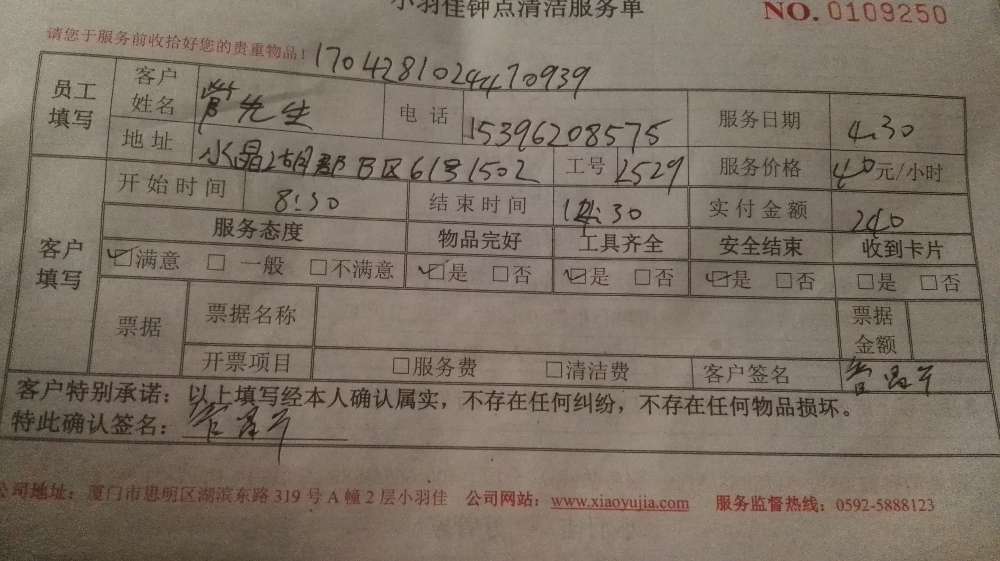 小羽佳钟点清洁服务单 NO. 0109250
请您于服务前收拾好您的贵重物品! 1704281024470939
员工填写 客户姓名 管先生 电话 15396208575 服务日期 4.30
地址 水晶湖郡B区61号1502 工号 2529 服务价格 40元/小时
客户填写 开始时间 8:30 结束时间 14:30 实付金额 240
服务态度 物品完好 工具齐全 安全结束 收到卡片
☑满意 □一般 □不满意 ☑是 □否 ☑是 □否 ☑是 □否 □是 □否
票据 票据名称 票据金额
开票项目 □服务费 □清洁费 客户签名
客户特别承诺:以上填写经本人确认属实,不存在任何纠纷,不存在任何物品损坏。
特此确认签名:
公司地址:厦门市思明区湖滨东路319号A幢2层小羽佳 公司网站:www.xiaoyujia.com 服务监督热线:0592-5888123